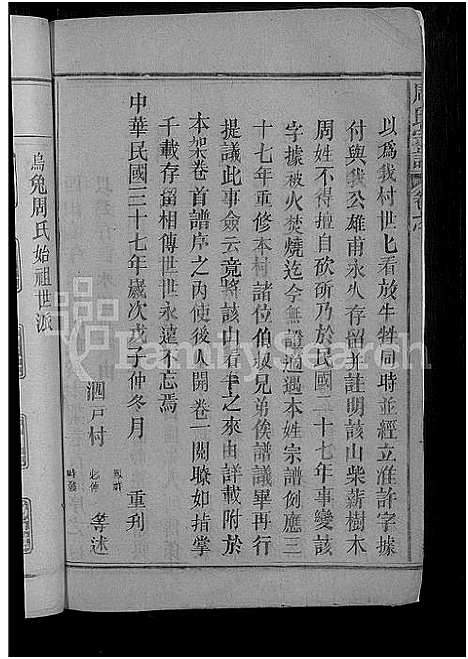 周氏宗譜
以爲我村世世看放牛牲同時並經立准許字據
付與我公雄甫永久存留並註明該山柴薪樹木
周姓不得擅自砍斫乃於民國二十七年事變該
字據被火焚燒迄今無證適遇本姓宗譜例應三
十七年重修本村諸位伯叔兄弟俟譜議畢再行
提議此事僉云竟將該山看牛之來由詳載附於
本架卷首譜序之內使後人開卷一閱瞭如指掌
千載存留相傳世世永遠不忘焉
中華民國三十七年歲次戊子仲冬月 重刋
泗戸村
必傳
等述
烏兔周氏始祖世派
FamilySearch